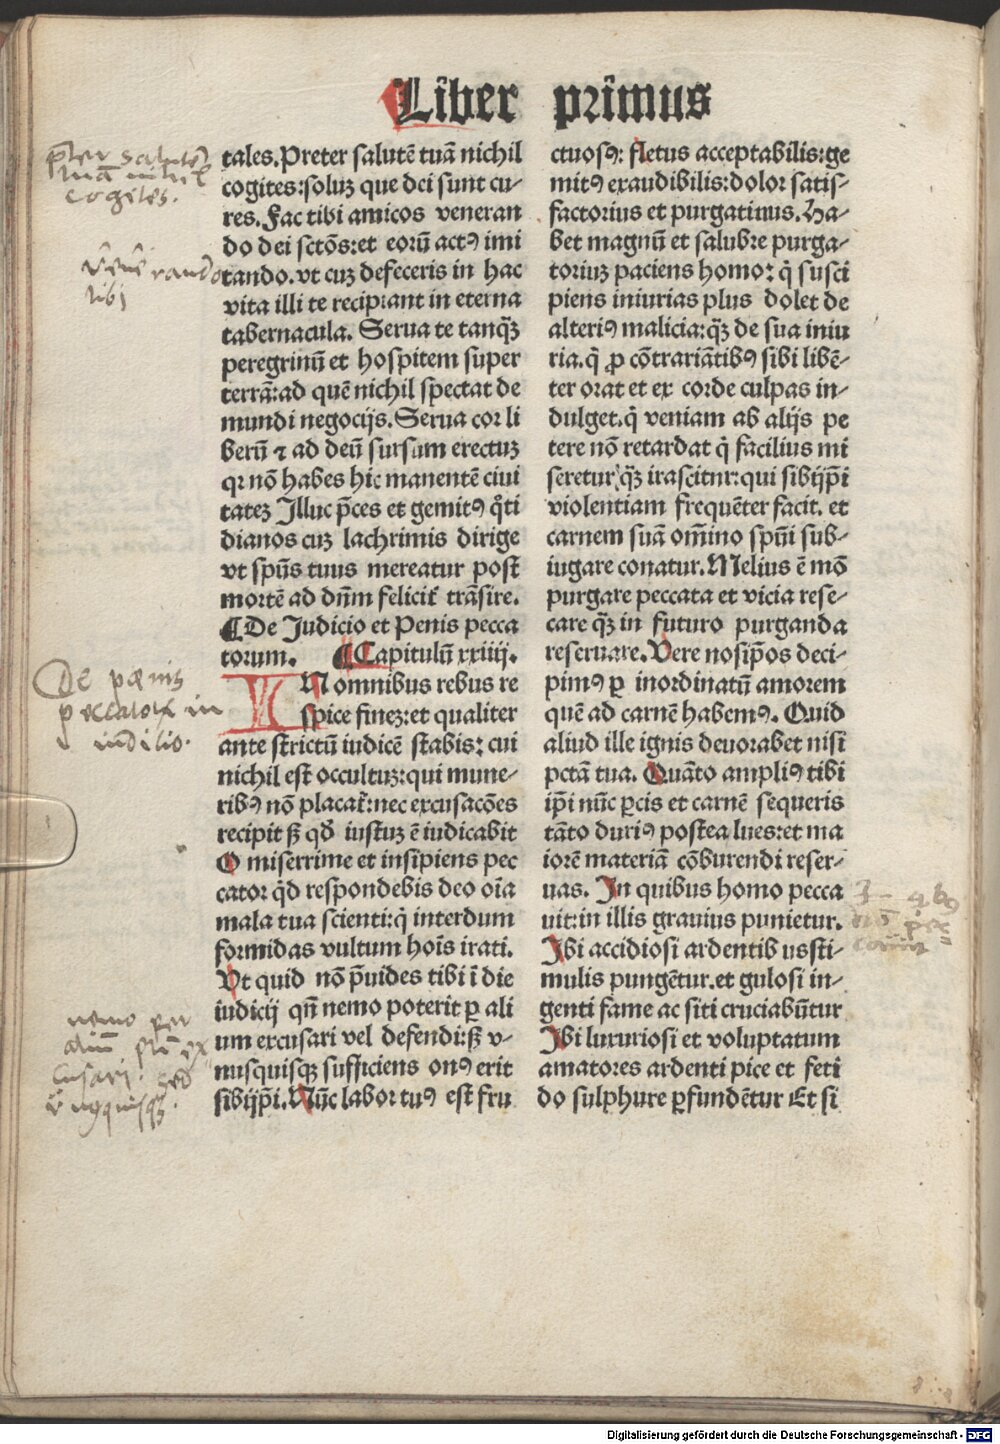 Liber primus
tales. Preter salutē tuā nichil
cogites: soluz que dei sunt cu-
res. Fac tibi amicos veneran
do dei sctōs: et eorū actꝰ imi
tando. vt cuz defeceris in hac
vita illi te recipiant in eterna
tabernacula. Serua te tanqꝫ
peregrinū et hospitem super
terrā: ad quē nichil spectat de
mundi negocijs. Serua cor li
berū ⁊ ad deū sursum erectuz
qꝛ nō habes hic manentē ciui
tatez Illuc p̄ces et gemitꝰ q̊ti
dianos cuz lachrimis dirige
vt spūs tuus mereatur post
mortē ad dn̄m felicit̄ trāsire.
¶ De Judicio et Penis pecca
torum. ¶ Capitulū xxiiij.
IN omnibus rebus re
spice finez: et qualiter
ante strictū iudicē stabis: cui
nichil est occultuz: qui mune-
ribꝰ nō placat̄: nec excusacōes
recipit sꝫ qđ iustuz ē iudicabit
O miserrime et insipiens pec
cator q̇d respondebis deo oīa
mala tua scienti: q̇ interdum
formidas vultum hoīs irati.
Vt quid nō p̄uides tibi ī die
iudicij qn̄ nemo poterit ꝑ ali
um excusari vel defendi: sꝫ v-
nusquisqꝫ sufficiens onꝰ erit
sibijp̄i. Nūc labor tuꝰ est fru
ctuosꝰ: fletus acceptabilis: ge
mitꝰ exaudibilis: dolor satis-
factorius et purgatiuus. Ha-
bet magnū et salubre purga-
toriuz paciens homo: q̇ susci
piens iniurias plus dolet de
alteriꝰ malicia: qꝫ de sua iniu
ria. q̇ ꝓ cōtrariātibꝰ sibi libē-
ter orat et ex corde culpas in-
dulget. q̇ veniam ab alijs pe
tere nō retardat q̇ facilius mi
seretur qꝫ irascitur: qui sibijp̄i
violentiam frequēter facit. et
carnem suā om̄ino spūi sub-
iugare conatur. Melius ē mō
purgare peccata et vicia rese-
care qꝫ in futuro purganda
reseruare. Vere nosip̄os deci-
pimꝰ ꝑ inordinatū amorem
quē ad carnē habemꝰ. Quid
aliud ille ignis deuorabet nisi
pctā tua. Quāto ampliꝰ tibi
ip̄i nūc ꝑcis et carnē sequeris
tāto duriꝰ postea lues: et ma
iorē materiā cōburendi reser-
uas. In quibus homo pecca
uit: in illis grauius punietur.
Ibi accidiosi ardentib ussti-
mulis pungētur. et gulosi in-
genti fame ac siti cruciabūtur
Ibi luxuriosi et voluptatum
amatores ardenti pice et feti
do sulphure ꝑfundētur Et si
p̄ter salutē
tuā nihil
cogites.
venerando
tibi
De pœnis
peccatorū in
iudicio.
nemo per
aliū
excusari. sed
vnꝰquisqꝫ.
Digitalisierung gefördert durch die Deutsche Forschungsgemeinschaft - DFG